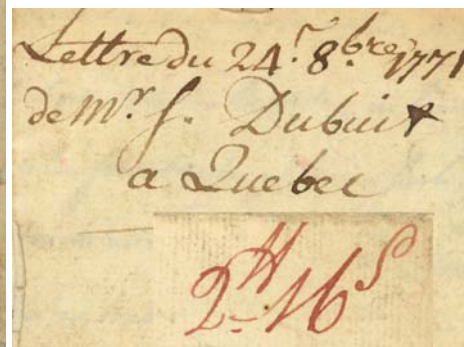 Lettre du 24.r 8.bre 1771
de Mr. f. Dubuis
a Quebec
2# 16s